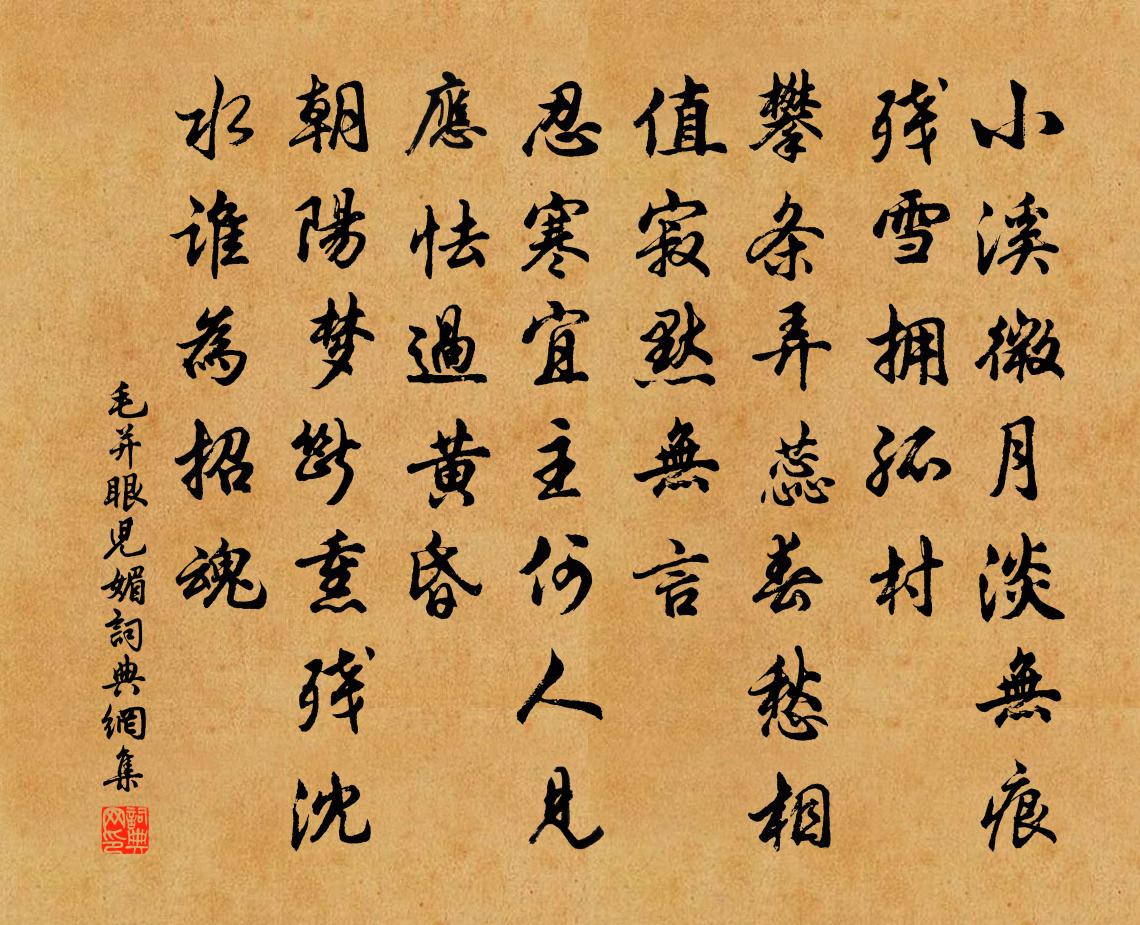 小溪微月淡無痕
残雪拥孤村
攀条弄蕊春愁相
值寂默無言
忍寒宜主何人見
應怯過黄昏
朝陽梦斷熏残沈
水谁為招魂
毛并眼児媚詞典網集
詞典网印